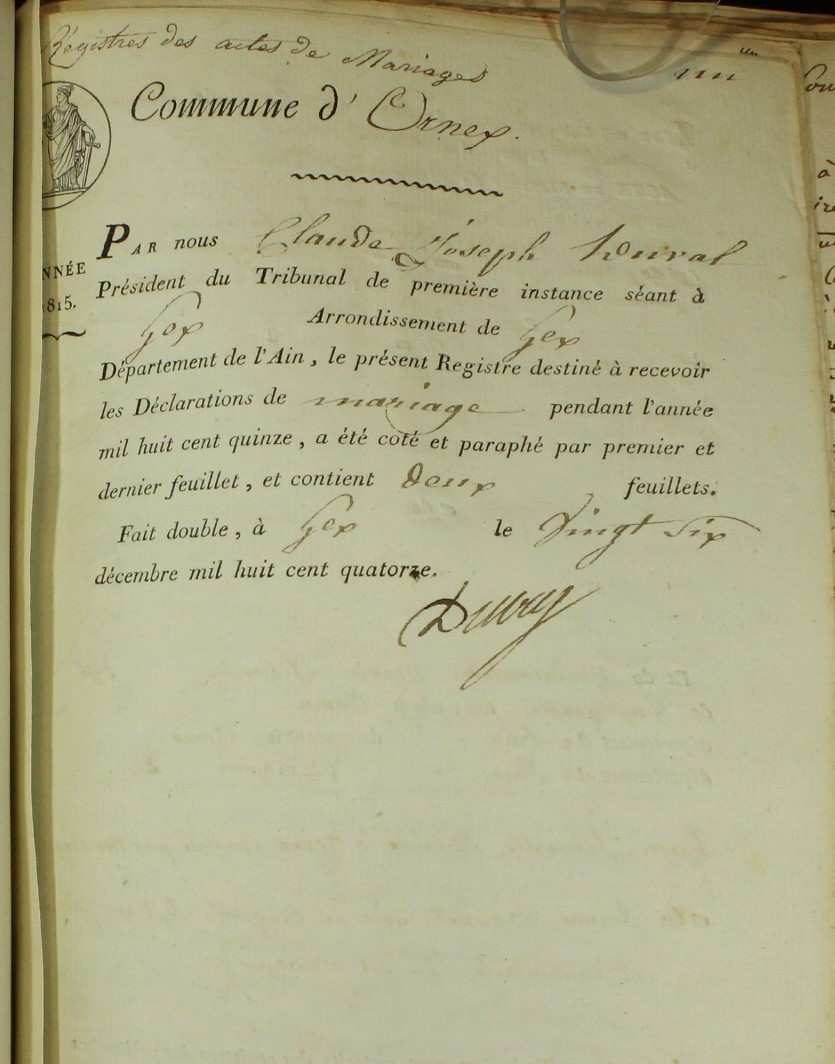 Régistres des actes de Mariages
Commune d' Ornex.
ANNÉE
1815.
PAR nous Claude Joseph Duval
Président du Tribunal de première instance séant à
Gex Arrondissement de Gex
Département de l'Ain, le présent Registre destiné à recevoir
les Déclarations de mariage pendant l'année
mil huit cent quinze, a été coté et paraphé par premier et
dernier feuillet, et contient deux feuillets.
Fait double, à Gex le Vingt Six
décembre mil huit cent quatorze.
Duval